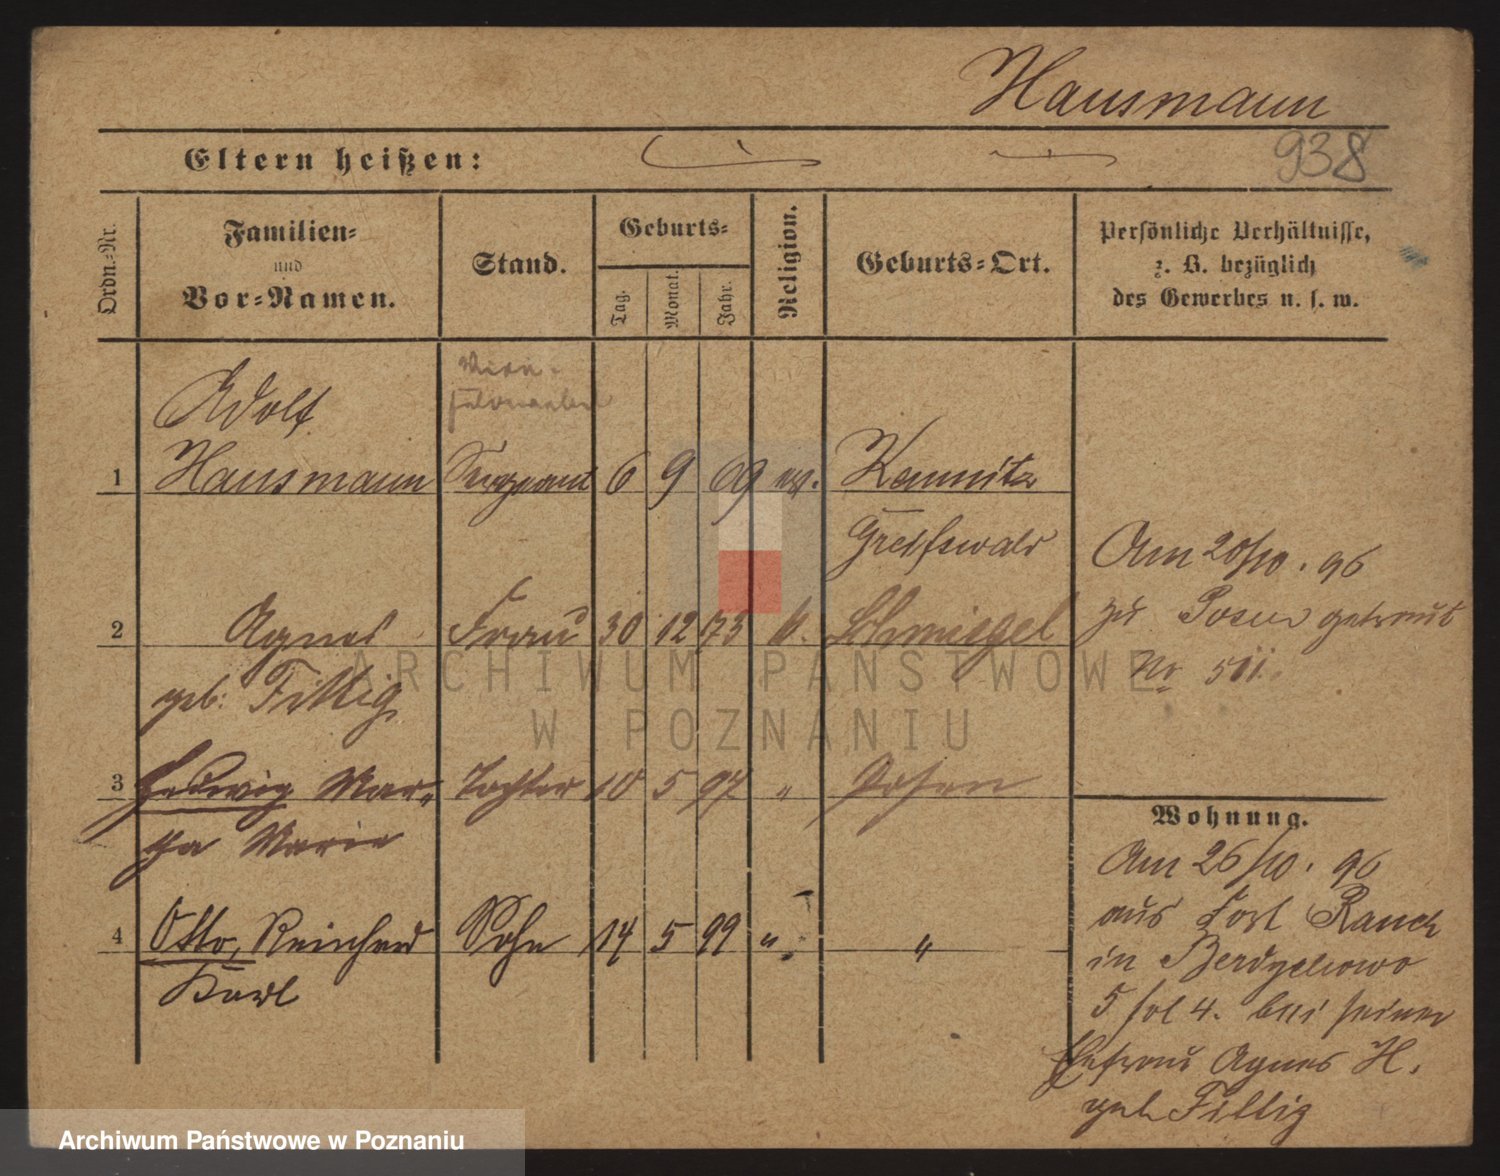 Hausmann
938
Eltern heißen:
Ordn.-Nr.
Familien-
und
Vor-Namen.
Stand.
Geburts-
Tag.
Monat.
Jahr.
Religion.
Geburts-Ort.
Persönliche Verhältnisse,
z. B. bezüglich
des Gewerbes u. s. w.
Adolf
1 Hausmann Sergeant 6 9 69 ev. Kemnitz
Greifswald
Am 20/10. 96
2 Agnes Frau 30 12 73 k. Schmiegel
zu Posen getraut
geb. Fittig
No 511.
3 Hedwig Mar- Tochter 10 5 97 " Posen
tha Marie
Wohnung.
Am 26/10. 96
4 Otto, Reinhard Sohn 14 5 99 " "
Karl
aus Fort Rauch
in Berdychowo
5 fol 4. bei seiner
Ehefrau Agnes H.
geb Fittig
ARCHIWUM PAŃSTWOWE
W POZNANIU
Archiwum Państwowe w Poznaniu